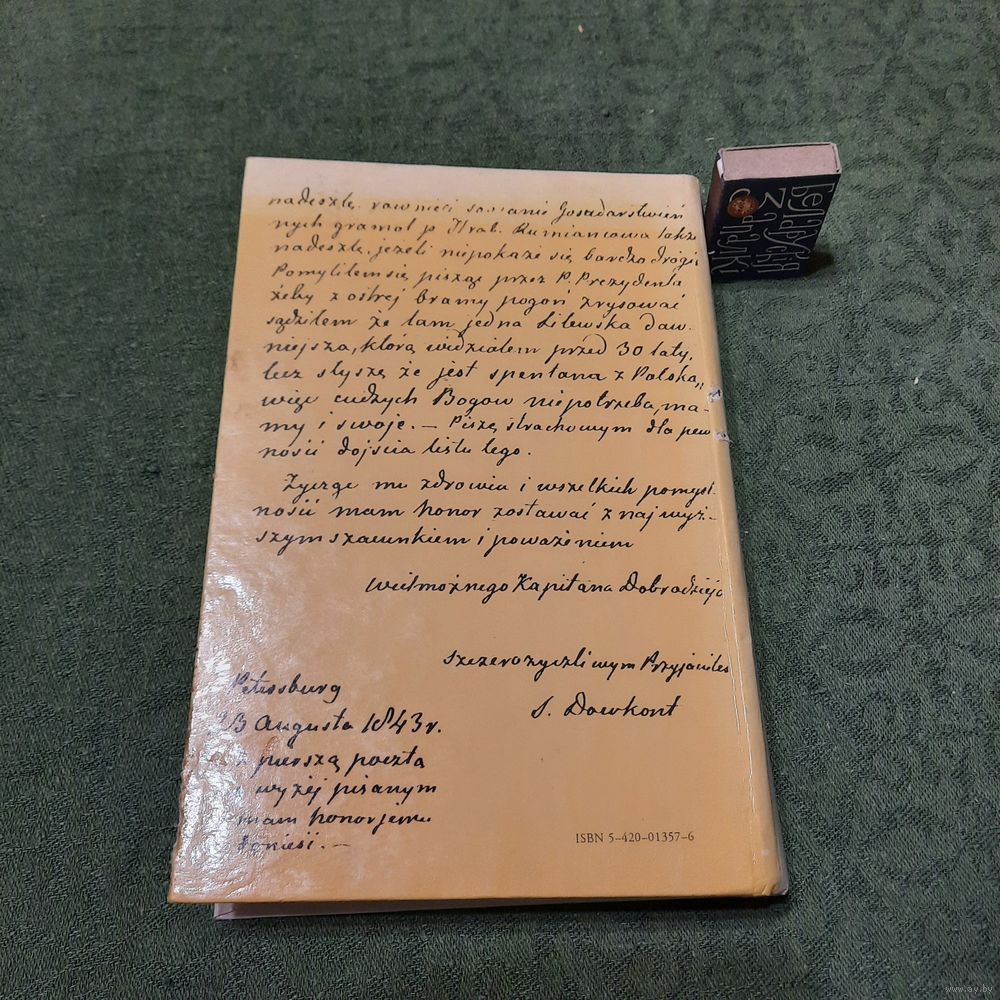 nadeszlę. rownież sobranie Gosudarstwień
nych gramot p Hrab. Rumiancowa takż
nadeszlę, jeżeli niepokaże się bardzo drogi
Pomyliłem się pisząc przez P. Prezydenta
żeby z ostrej bramy pogoń zrysować
sądziłem że tam jedna Litewska daw-
niejsza, ktorą widziałem przed 30 laty,
lecz słyszę że jest spentana z Polską,
więc cudzych Bogow niepotrzeba, ma-
my i swoje. — Piszę strachowym dla pew
ności dojscia listu tego.
Życząc mu zdrowia i wszelkich pomysl
ności mam honor zostawać z najwyż-
szym szacunkiem i poważeniem
wielmożnego Kapitana Dobrodzieja
szczerozyczliwym Przyjacielem
S. Dowkont
Petersburg
23 Augusta 1843 r.
z pierszą poczta
o wyżej pisanym
mam honor jemu
donieść. —
ISBN 5-420-01357-6
Беларускія
запалкі
www.ay.by